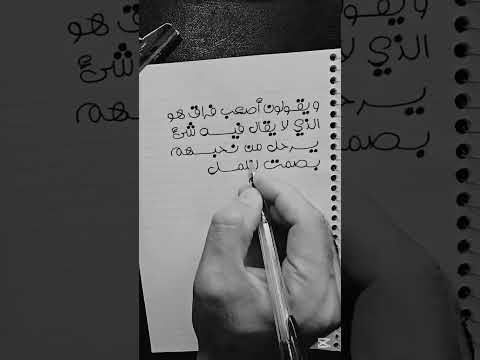 و يقولون أصعب فراق هو
الذي لا يقال فيه شئ
يرحل من نحبهم
بصمت